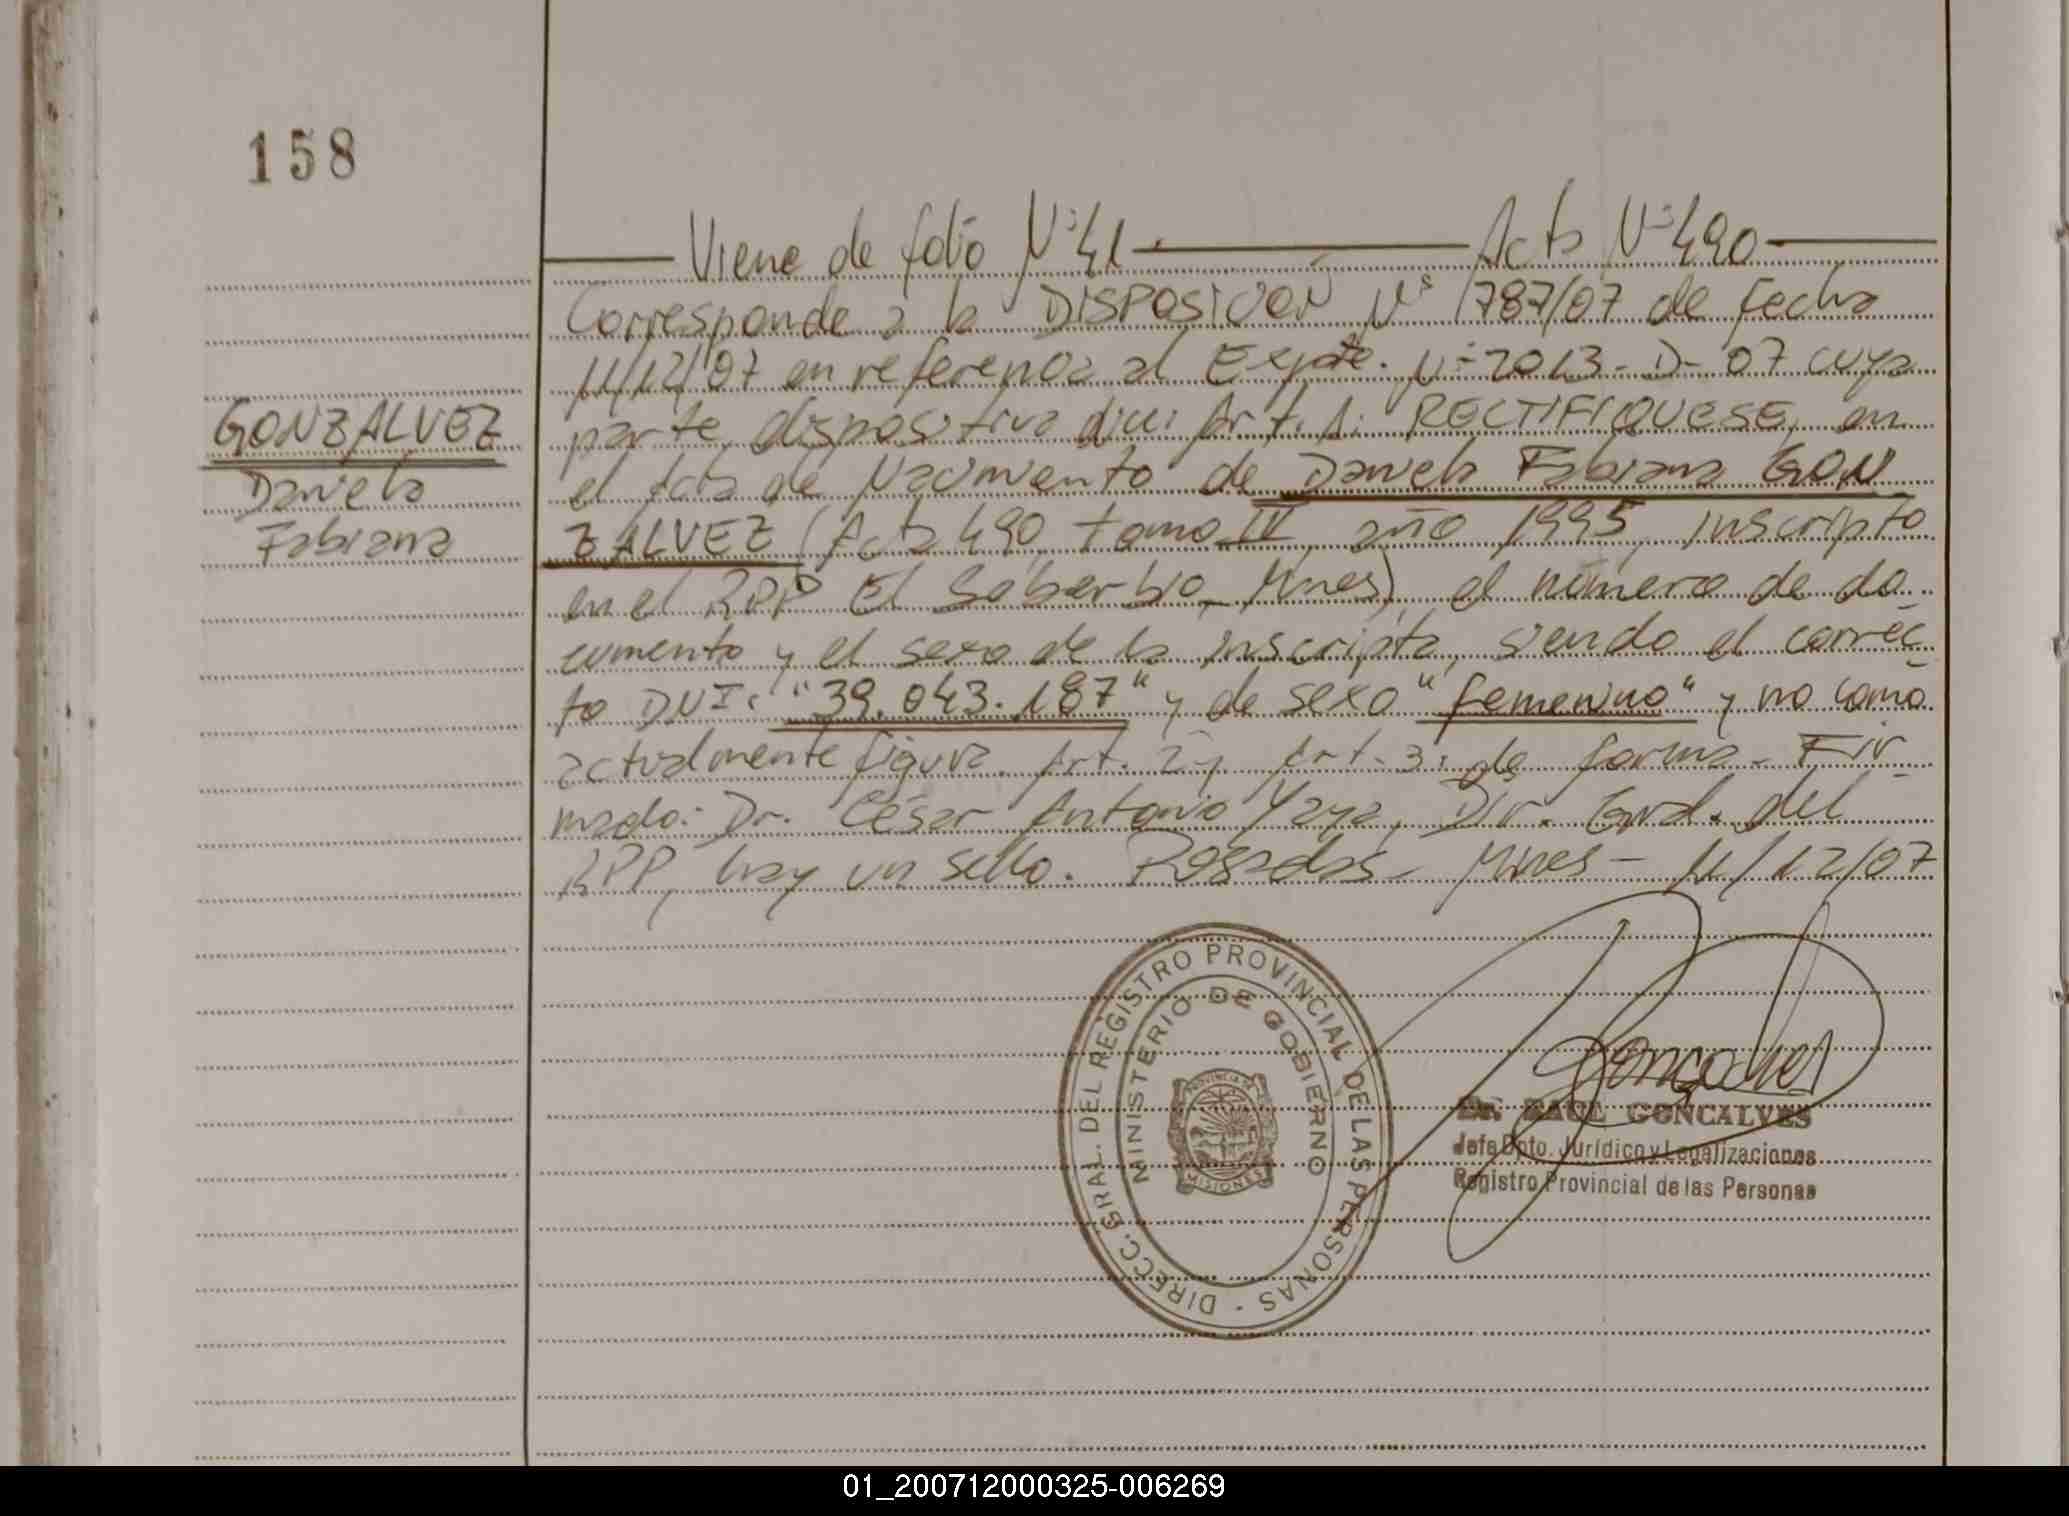 158
Viene de folio Nº 41 Acta Nº 490
Corresponde a la DISPOSICION Nº 1787/07 de fecha
11/12/07 en referencia al Expte. Nº 2013-D-07 cuya
parte dispositiva dice: Art. 1: RECTIFIQUESE, en
el Acta de Nacimiento de Daniela Fabiana GON
ZALVEZ (Acta 490, tomo IV, año 1995, inscripto
en el RPP El Soberbio, Mnes), el número de do-
cumento y el sexo de la inscripta, siendo el correc-
to DNI: "39.043.187" y de sexo "femenino" y no como
actualmente figura. Art. 2 y Art. 3: de forma. Fir-
mado: Dr. César Antonio Yaya, Dir. Gral. del
RPP, hay un sello. Posadas - Mnes - 11/12/07
GONZALVEZ
Daniela
Fabiana
DIRECC. GRAL. DEL REGISTRO PROVINCIAL DE LAS PERSONAS -
MINISTERIO DE GOBIERNO
PROVINCIA DE
MISIONES
Goncalves
Dr. RAUL GONCALVES
Jefe Dpto. Jurídico y Legalizaciones
Registro Provincial de las Personas
01_200712000325-006269